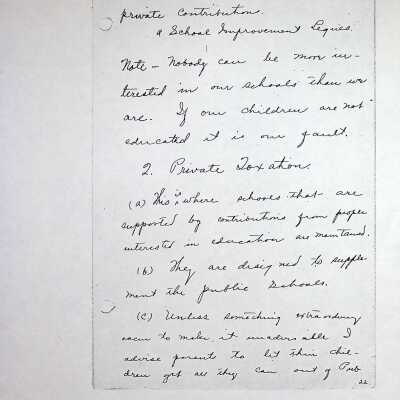 private Contribution.
a School Improvement Legues.
Note - Nobody can be more in-
terested in our schools than we
are. If our children are not
educated it is our fault.
2. Private Taxation.
(a) This is where schools that are
supported by contributions from people
interested in education are maintained.
(b) They are disigned to supple-
ment the public Schools.
(C) Unless something extraordinary
occur to make it unadvisable I
advise parents to let their chil-
dren get all they can out of Pub
22